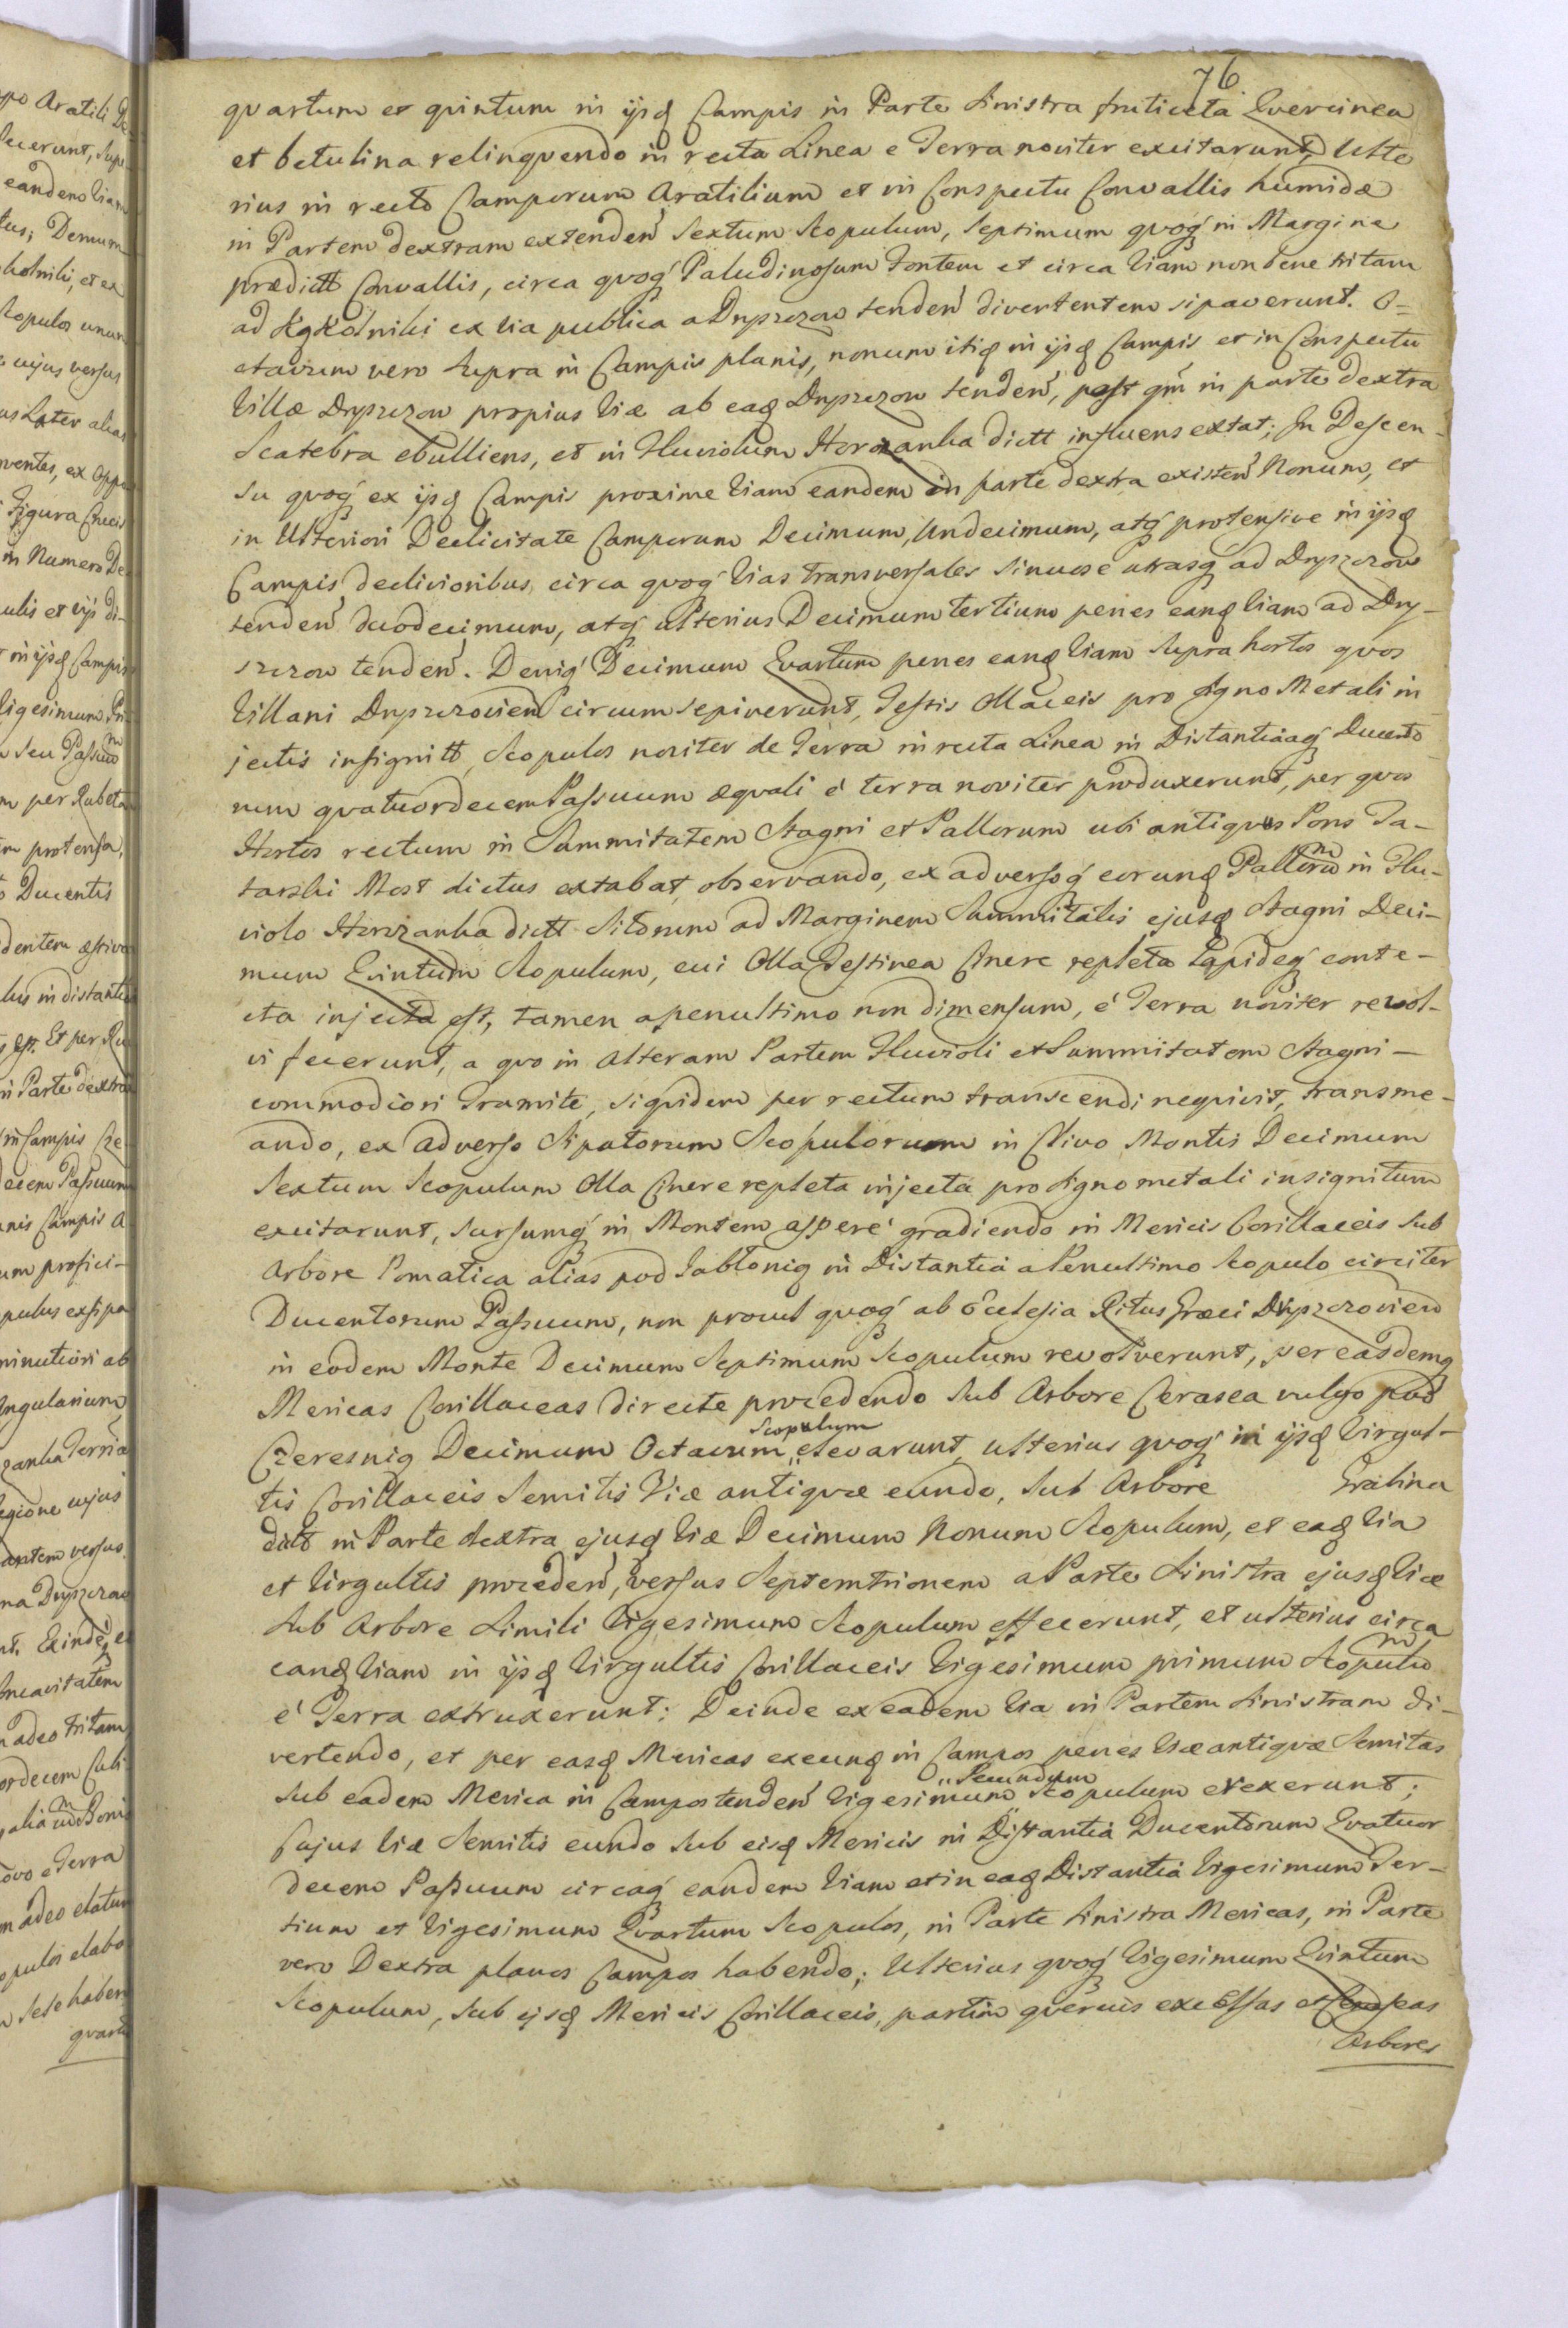 76
qvartum et qvintum in ijsq Campis in Parte Sinistra fruticeta Qvercinea
et betulina relinqvendo in recta Linea e Terra noviter excitarunt, Ulte
rius in recto Camporum Aratilium et in Conspectu Convallis humidæ
in Partem dextram extenden Sextum Scopulum, Septimum qvoq in Margine
prædictt Convallis, circa qvoq Paludinosum Fontem et circa Viam non bene tritam
ad Kąkolniki ex via publica a Dryszczow tenden divertentem sipaverunt. O=
ctavum vero supra in Campis planis, nonum itiq in ijsq Campis et in Conspectu
Villæ Dryszczow propius Viæ ab eaq Dryszczow tenden, post qm in parte dextra
Scatebra ebulliens, et in Fluviolum Horozanka dictt influens extat; In Descen-
su qvoq ex ijsq Campis proxime Viam eandem in parte dextra existen Nonum, et
in Ulteriori Declivitate Camporum Decimum, Undecimum, atq protensive in ijsq
Campis declivioribus circa qvoq Vias transversales sinuose utrasq ad Dryszczow
tenden duodecimum, atq ulterius Decimum tertium penes eanq Viam ad Dry-
szczow tenden. Deniq Decimum Qvartum penes eanq Viam supra hortos qvos
Villani Dryszczovien circumsepiverunt, Testis Ollaceis pro signo Metali in
jectis insignitt, Scopulos noviter de Terra in recta Linea in Distantiaq Ducento
rum qvatuordecem Passuum æqvali é terra noviter produxerunt, per qvos
Hortos rectum in Summitatem Stagni et Pallorum ubi antiqvus Pons Ta-
tarski Most dictus extabat, observando, ex adversoq eorunq Pallorum in Flu-
violo Horozanka dictt Sitorum ad Marginem Summitatis ejusq Stagni Deci-
mum Qvintum Scopulum, cui Olla Testinea Cinere repleta Lapideq conte-
cta injecta est, tamen a penultimo non dimensum, é Terra noviter revol-
vi fecerunt, a qvo in alteram Partem Fluvioli et Summitatem Stagni -
commodiori Tramite, siqvidem per rectum transcendi neqvivit, transme-
ando, ex adverso Sipatorum Scopulorum in Clivo Montis Decimum
Sextum Scopulum Olla Cinere repleta injecta pro signo metali insignitum
excitarunt, sursumq in Montem asperé gradiendo in Mericis Corillaceis Sub
Arbore Pomatica alias pod Jabłonią in Distantia a Penultimo Scopulo circiter
Ducentorum Passuum, non procul qvoq ab Ecclesia Ritus Græci Dryszczovien
in eodem Monte Decimum Septimum Scopulum revolverunt, per easdemq
Mericas Corillaceas directe procedendo Sub Arbore Cerasea vulgo pod
Czeresnią Decimum Octavum Scopulum elevarunt, ulterius qvoq in ijsq Virgul-
tis Corillaceis Semitis Viæ antiqvæ eundo, Sub Arbore Grabina
dictt in Parte dextra ejusq Viæ Decimum Nonum Scopulum, et eaq Via
et Virgultis proceden, versus Septemtrionem a Parte Sinistra ejusq Viæ
Sub Arbore Simili Vigesimum Scopulum effecerunt, et ulterius circa
eanq Viam in ijsq Virgultis Corillaceis Vigesimum primum Scopulum
é Terra extruxerunt: Deinde ex eadem Via in Partem Sinistram di-
vertendo, et per easq Mericas exeunq in Campos penes Viæ antiqvæ Semitas
Sub eadem Merica in Campos tenden Vigesimum Secundum Scopulum erexerunt;
Cujus Viæ Semitis eundo Sub eisq Mericis in Distantia Ducentorum Qvatuor
decem Passuum circaq eandem Viam et in eaq Distantia Vigesimum Ter-
tium et Vigesimum Qvartum Scopulos, in Parte Sinistra Mericas, in Parte
vero Dextra planos Campos habendo; Ulterius qvoq Vigesimum Qvintum
Scopulum, Sub ijsq Mericis Corillaceis, partim qvercus excelsas et
Arbores